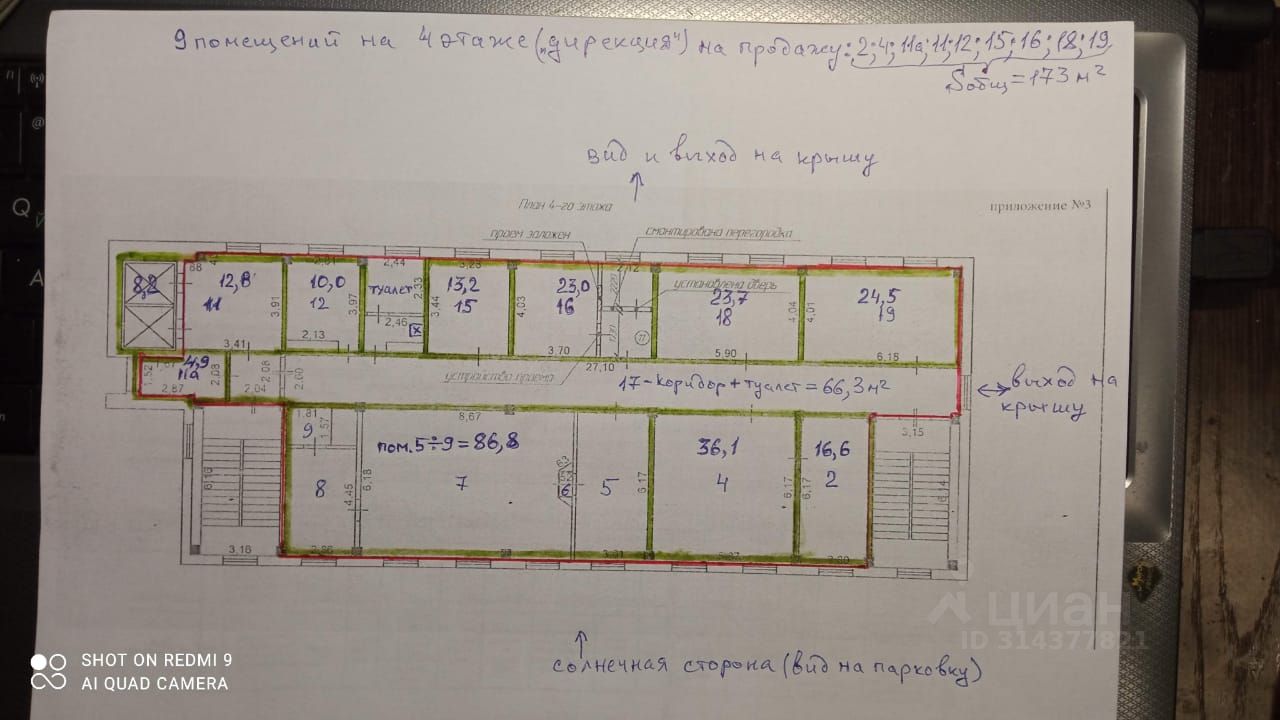 9 помещений на 4 этаже („дирекция“) на продажу: 2; 4; 11а; 11; 12; 15; 16; 18; 19
Sобщ = 173 м²
вид и выход на крышу
План 4-го этажа
приложение №3
проем заложен
смонтирована перегородка
2,44
2,12
8,2
12,8
11
3,91
10,0
12
3,97
туалет
2,33
2,46
x
13,2
15
3,44
4,03
23,0
16
установлена дверь
23,7
18
4,04
4,01
24,5
19
3,41
2,13
3,70
27,10
5,90
6,18
4,9
11а
1,52
2,87
2,08
2,04
2,08
2,00
устройство проема
17-коридор + туалет = 66,3 м²
выход на
крышу
1,81
1,57
9
8,67
3,15
пом. 5÷9 = 86,8
36,1
16,6
6,16
8
4,45
6,18
7
6
5
6,17
4
6,17
6,17
2
6,14
3,16
циан
ID 314377821
солнечная сторона (вид на парковку)
SHOT ON REDMI 9
AI QUAD CAMERA